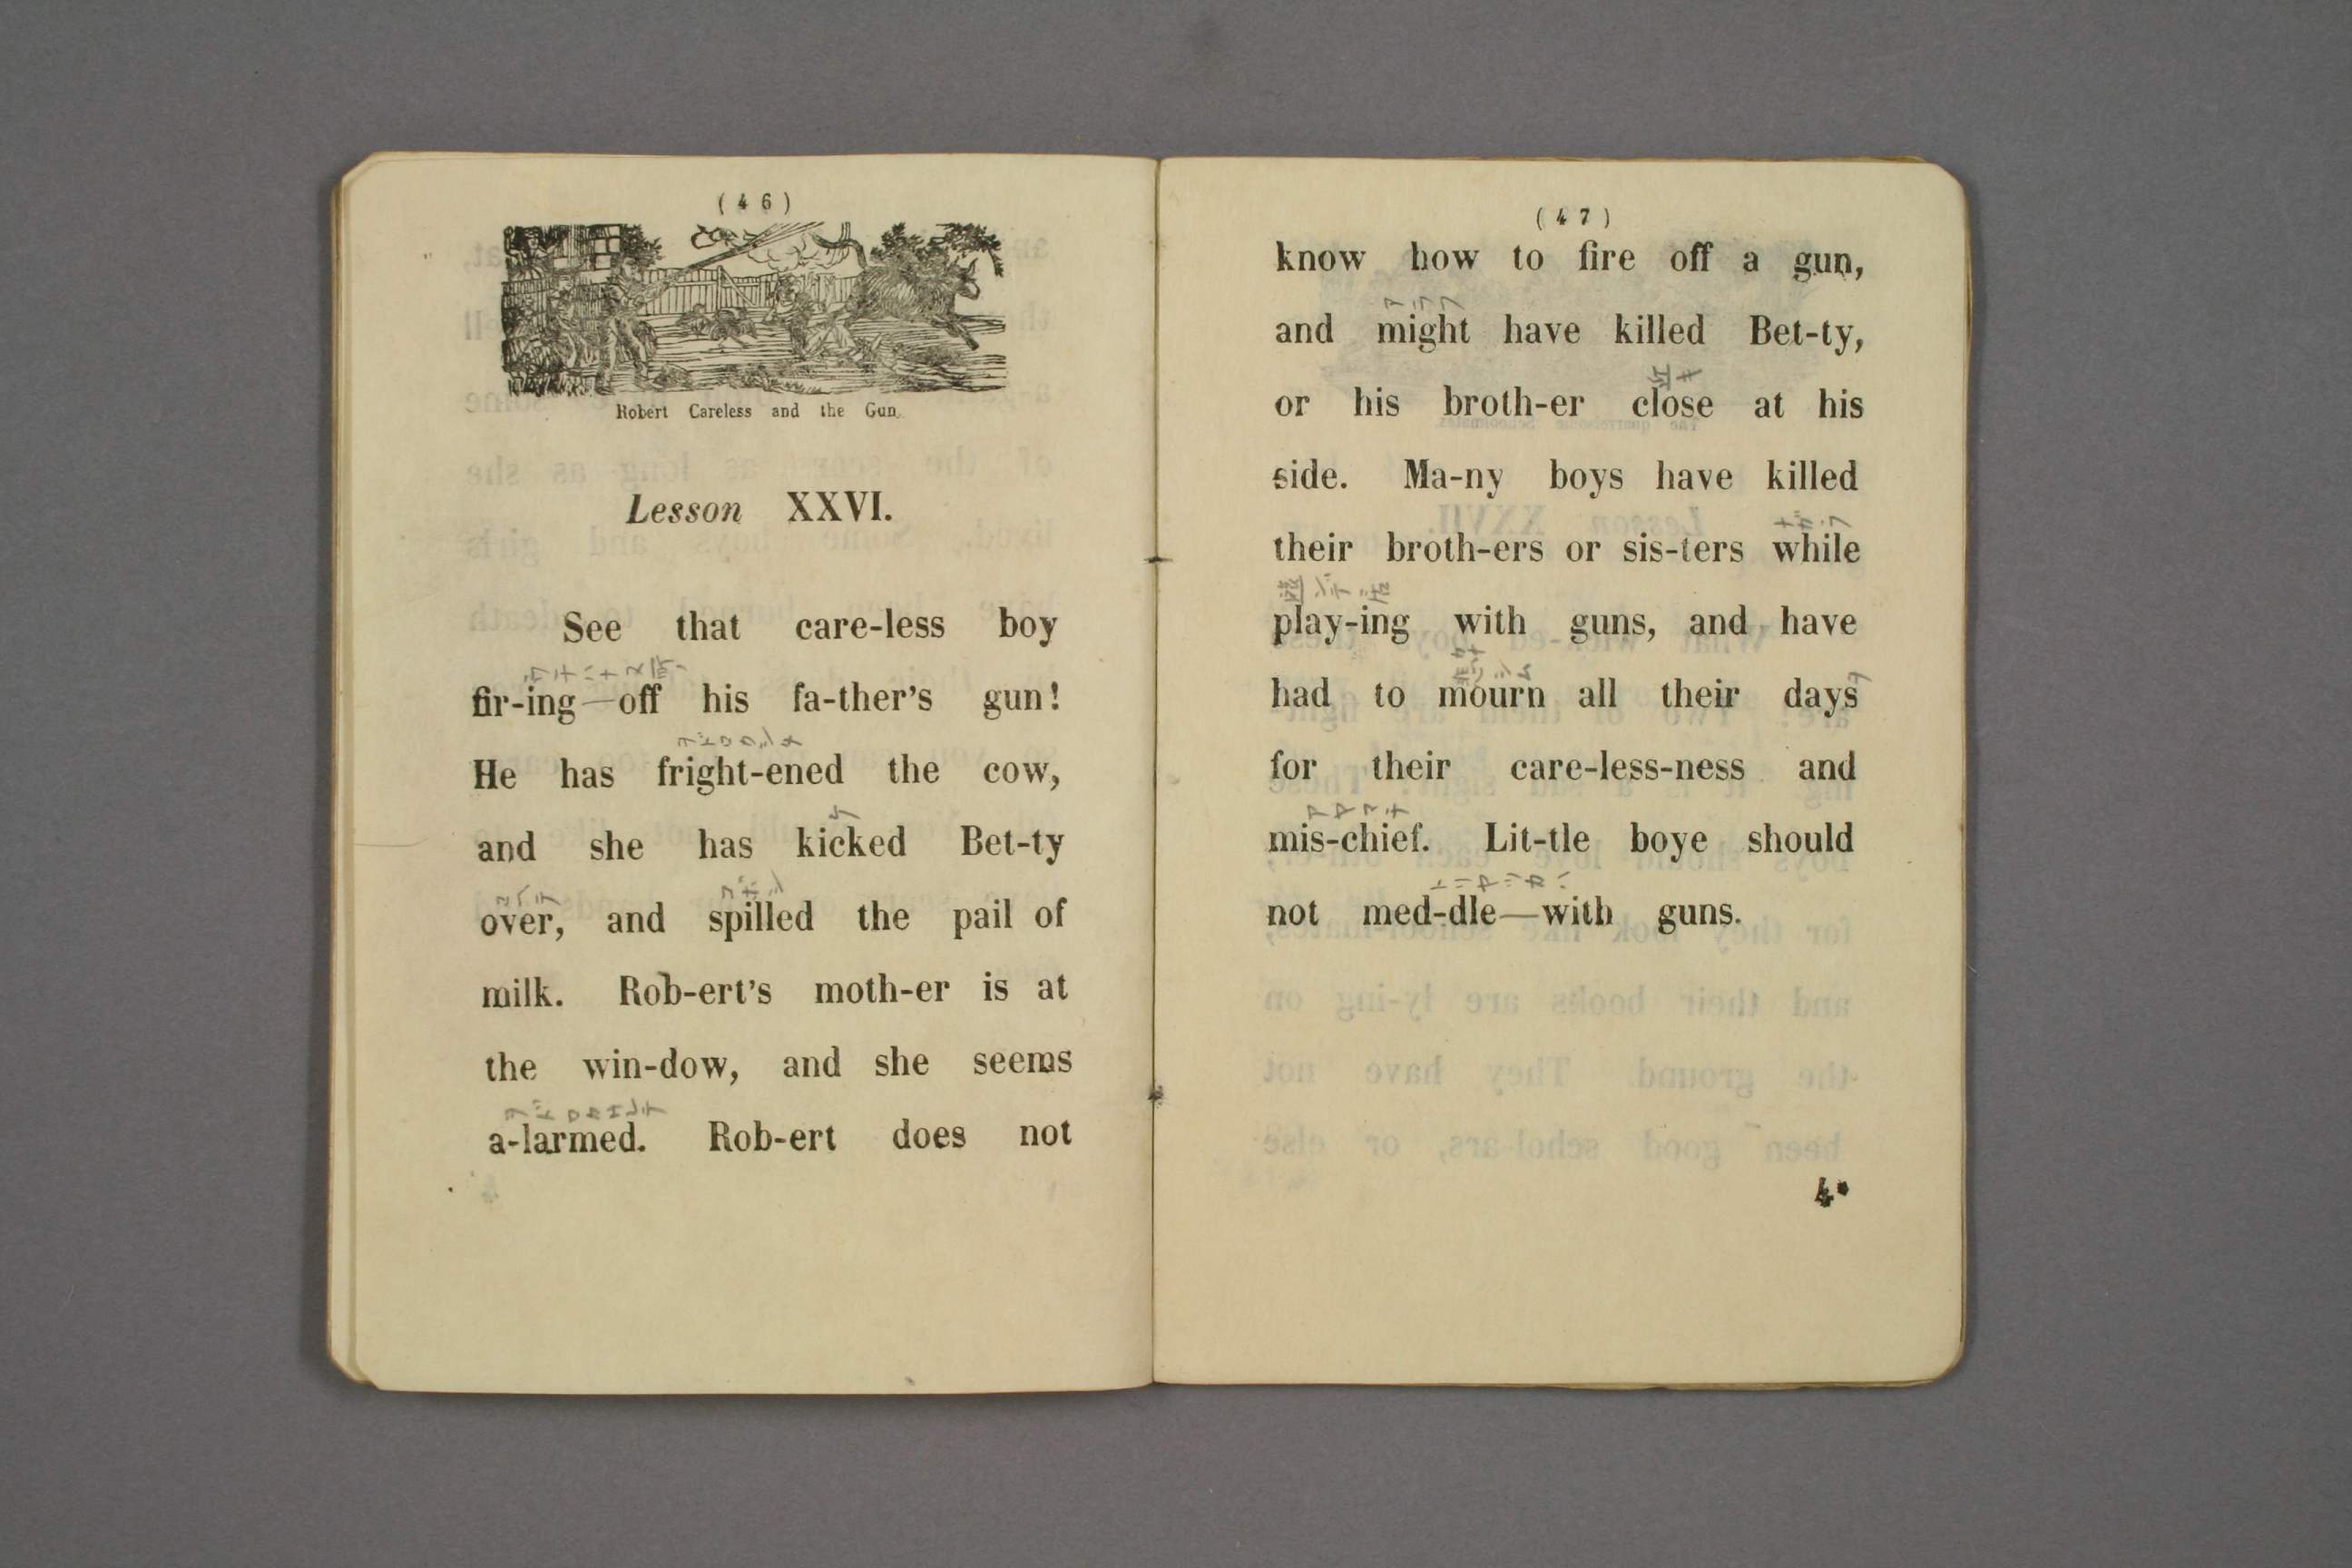 ( 4 6 )
Robert Careless and the Gun.
Lesson XXVI.
See that care-less boy
fir-ing—off his fa-ther's gun!
He has fright-ened the cow,
and she has kicked Bet-ty
over, and spilled the pail of
milk. Rob-ert's moth-er is at
the win-dow, and she seems
a-larmed. Rob-ert does not
( 4 7 )
know how to fire off a gun,
and might have killed Bet-ty,
or his broth-er close at his
side. Ma-ny boys have killed
their broth-ers or sis-ters while
play-ing with guns, and have
had to mourn all their days
for their care-less-ness and
mis-chief. Lit-tle boye should
not med-dle—with guns.
4*